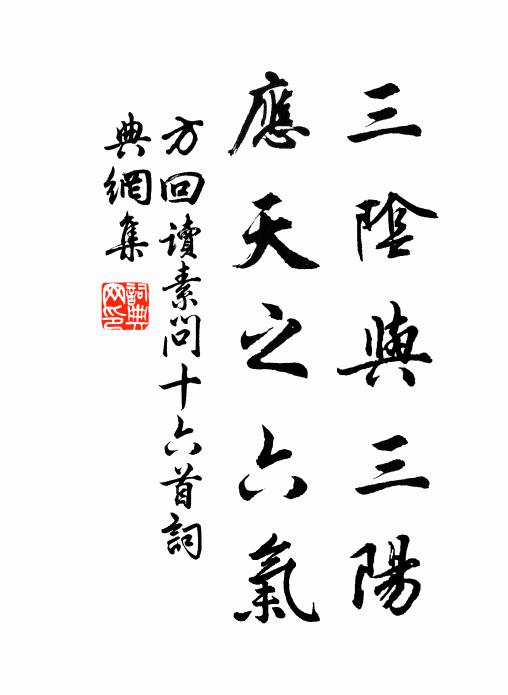 三陰與三陽
應天之六氣
方回讀素問十六首詞
典網集
詞典
网印